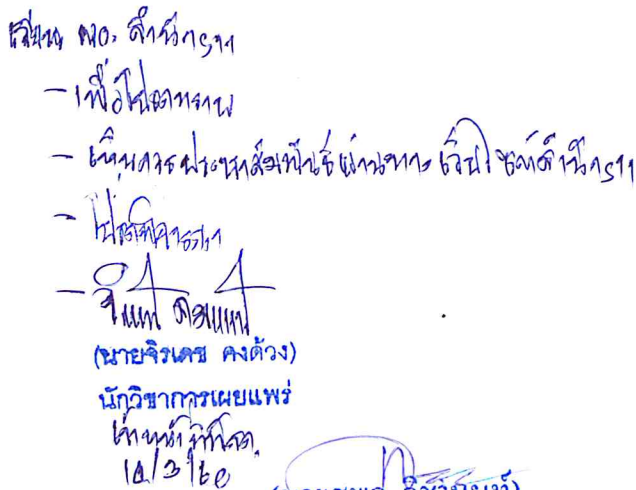 เรียน ผอ. สำนักฯ
- เพื่อโปรดทราบ
- เห็นควรประชาสัมพันธ์ผ่านทางเว็บไซต์สำนักฯ
- โปรดพิจารณา
(นายจิรเดช คงด้วง)
นักวิชาการเผยแพร่